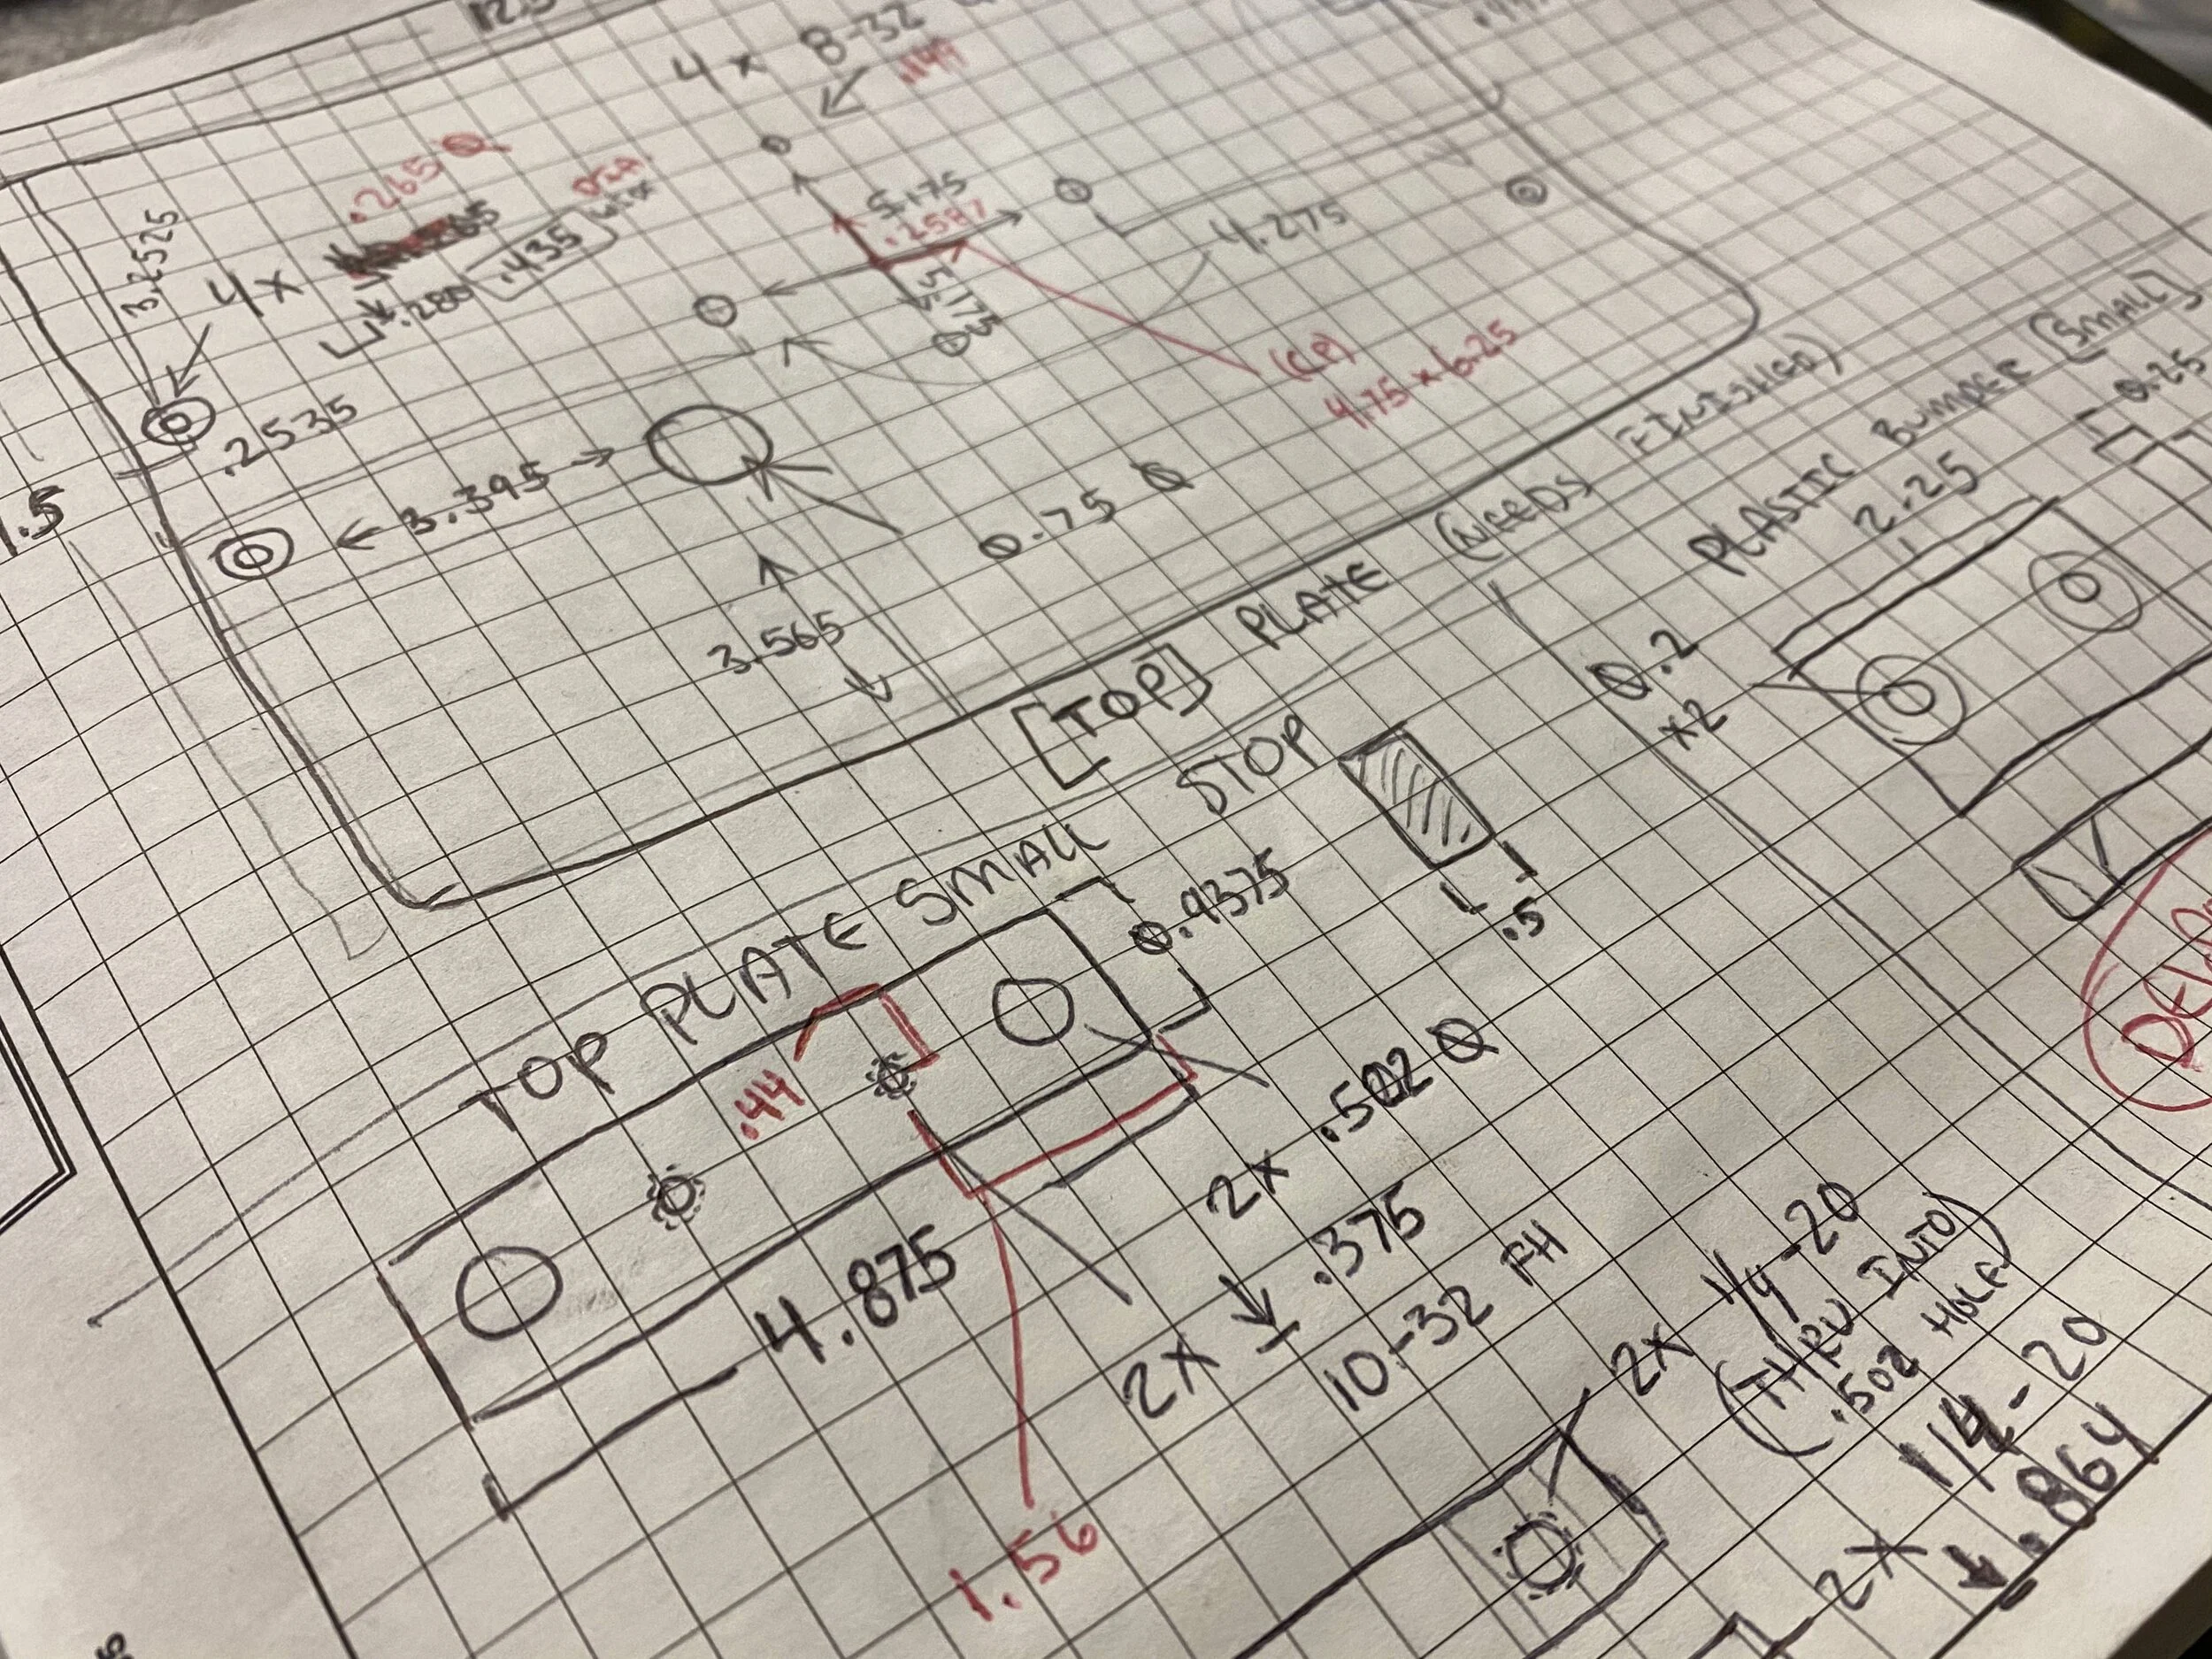 4x 8-32
.149
.265 Ø
4x
.280 .435 DIA.
3.2525
5.175
.2587
5.175
4.275
(CP)
4.75 x 6.25
.2535
← 3.395 →
0.75 Ø
3.565
1.5
[TOP] PLATE (NEEDS FINISHED)
PLASTIC BUMPER (SMALL)
2.25
0.25
0.2
x2
TOP PLATE SMALL STOP
.5
0.9375
.44
2x .502 Ø
4.875
2x ↓ .375
10-32 FH
1.56
2x 1/4-20
(THRU INTO
.502 HOLE)
2x 1/4-20
↓ .864